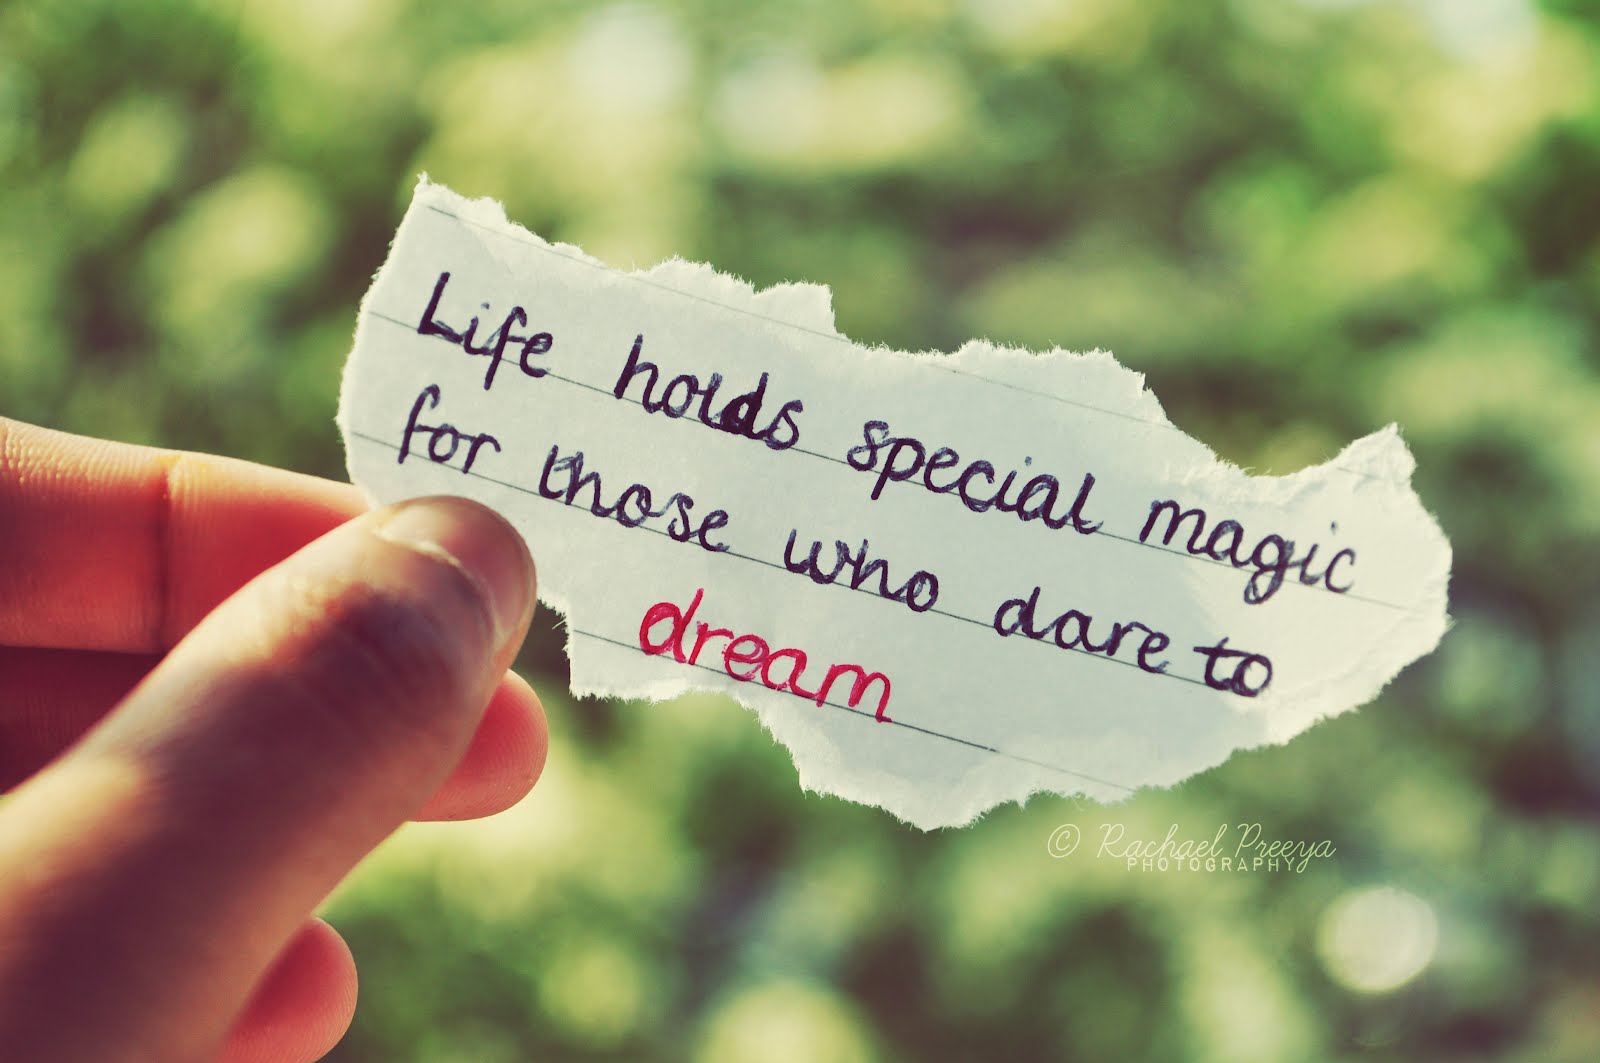 Life holds special magic
for those who dare to
dream
© Rachael Preeya
PHOTOGRAPHY